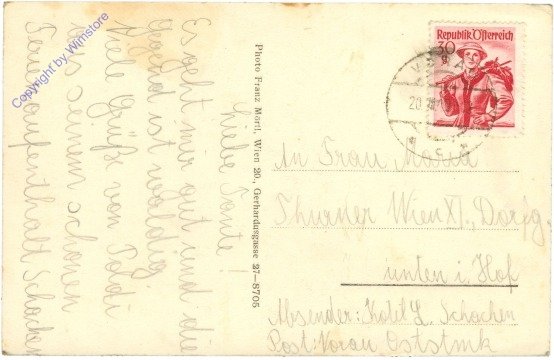 Liebe Tante!
Es geht mir gut und die
Gegend ist waldig
Viele Grüße von Poldi
aus seinem schönen
Ferienaufenthalt Schachen
Photo Franz Mörtl, Wien 20., Gerhardusgasse 27–8705
Republik Österreich
30
g
20.
An Frau Maria
Thurner Wien XI., Dorfg.
unten i. Hof
Absender: Kotil L. Schachen
Post: Vorau Oststmk
Copyright by Wimstore